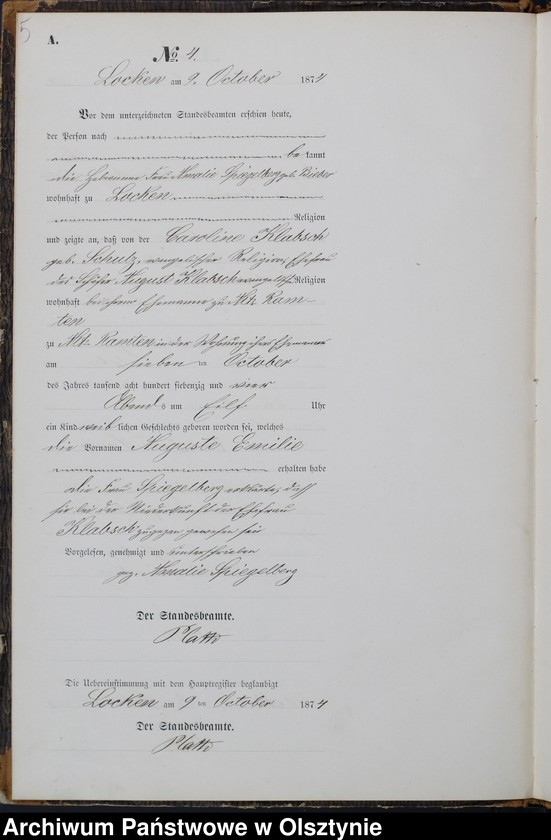 5
A.
No. 4.
Locken am 9. October 1874
Vor dem unterzeichneten Standesbeamten erschien heute,
der Person nach
be kannt
die Hebamme Frau Amalie Spiegelberg geb. Bieber
wohnhaft zu Locken
Religion
und zeigte an, daß von der Caroline Klabsch
geb. Schulz, evangelischer Religion, Ehefrau
des Schäfer August Klabsch evangelischer Religion
wohnhaft bei ihrem Ehemanne zu Alt Ram-
ten
zu Alt Ramten in der Wohnung ihres Ehemannes
am sieben ten October
des Jahres tausend acht hundert siebenzig und vier
Abend s um Eilf Uhr
ein Kind weib lichen Geschlechts geboren worden sei, welches
die Vornamen Auguste Emilie
erhalten habe
die Frau Spiegelberg erklärte, daß
sie bei der Niederkunft der Ehefrau
Klabsch zugegen gewesen sei
Vorgelesen, genehmigt und unterschrieben
gez. Amalie Spiegelberg
Der Standesbeamte.
Die Uebereinstimmung mit dem Hauptregister beglaubigt
Locken am 9 ten October 1874
Der Standesbeamte.
Archiwum Państwowe w Olsztynie